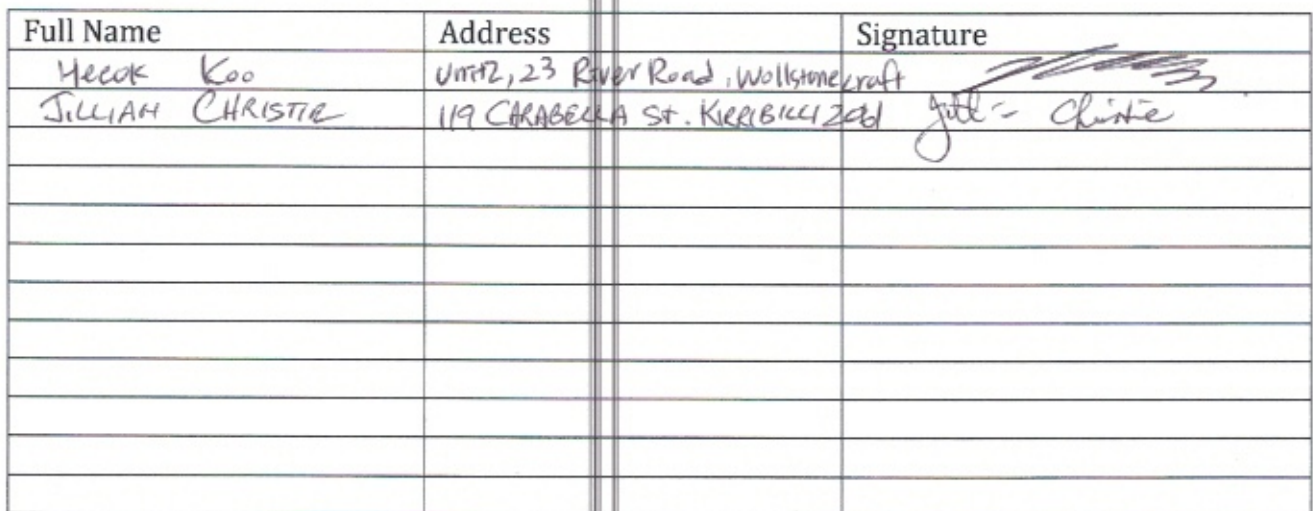 Full Name Address Signature
Yeeok Koo Unit 2, 23 River Road, Wollstonecraft
JILLIAN CHRISTIE 119 CARABELLA St. KIRRIBILLI 2061 Jill Christie